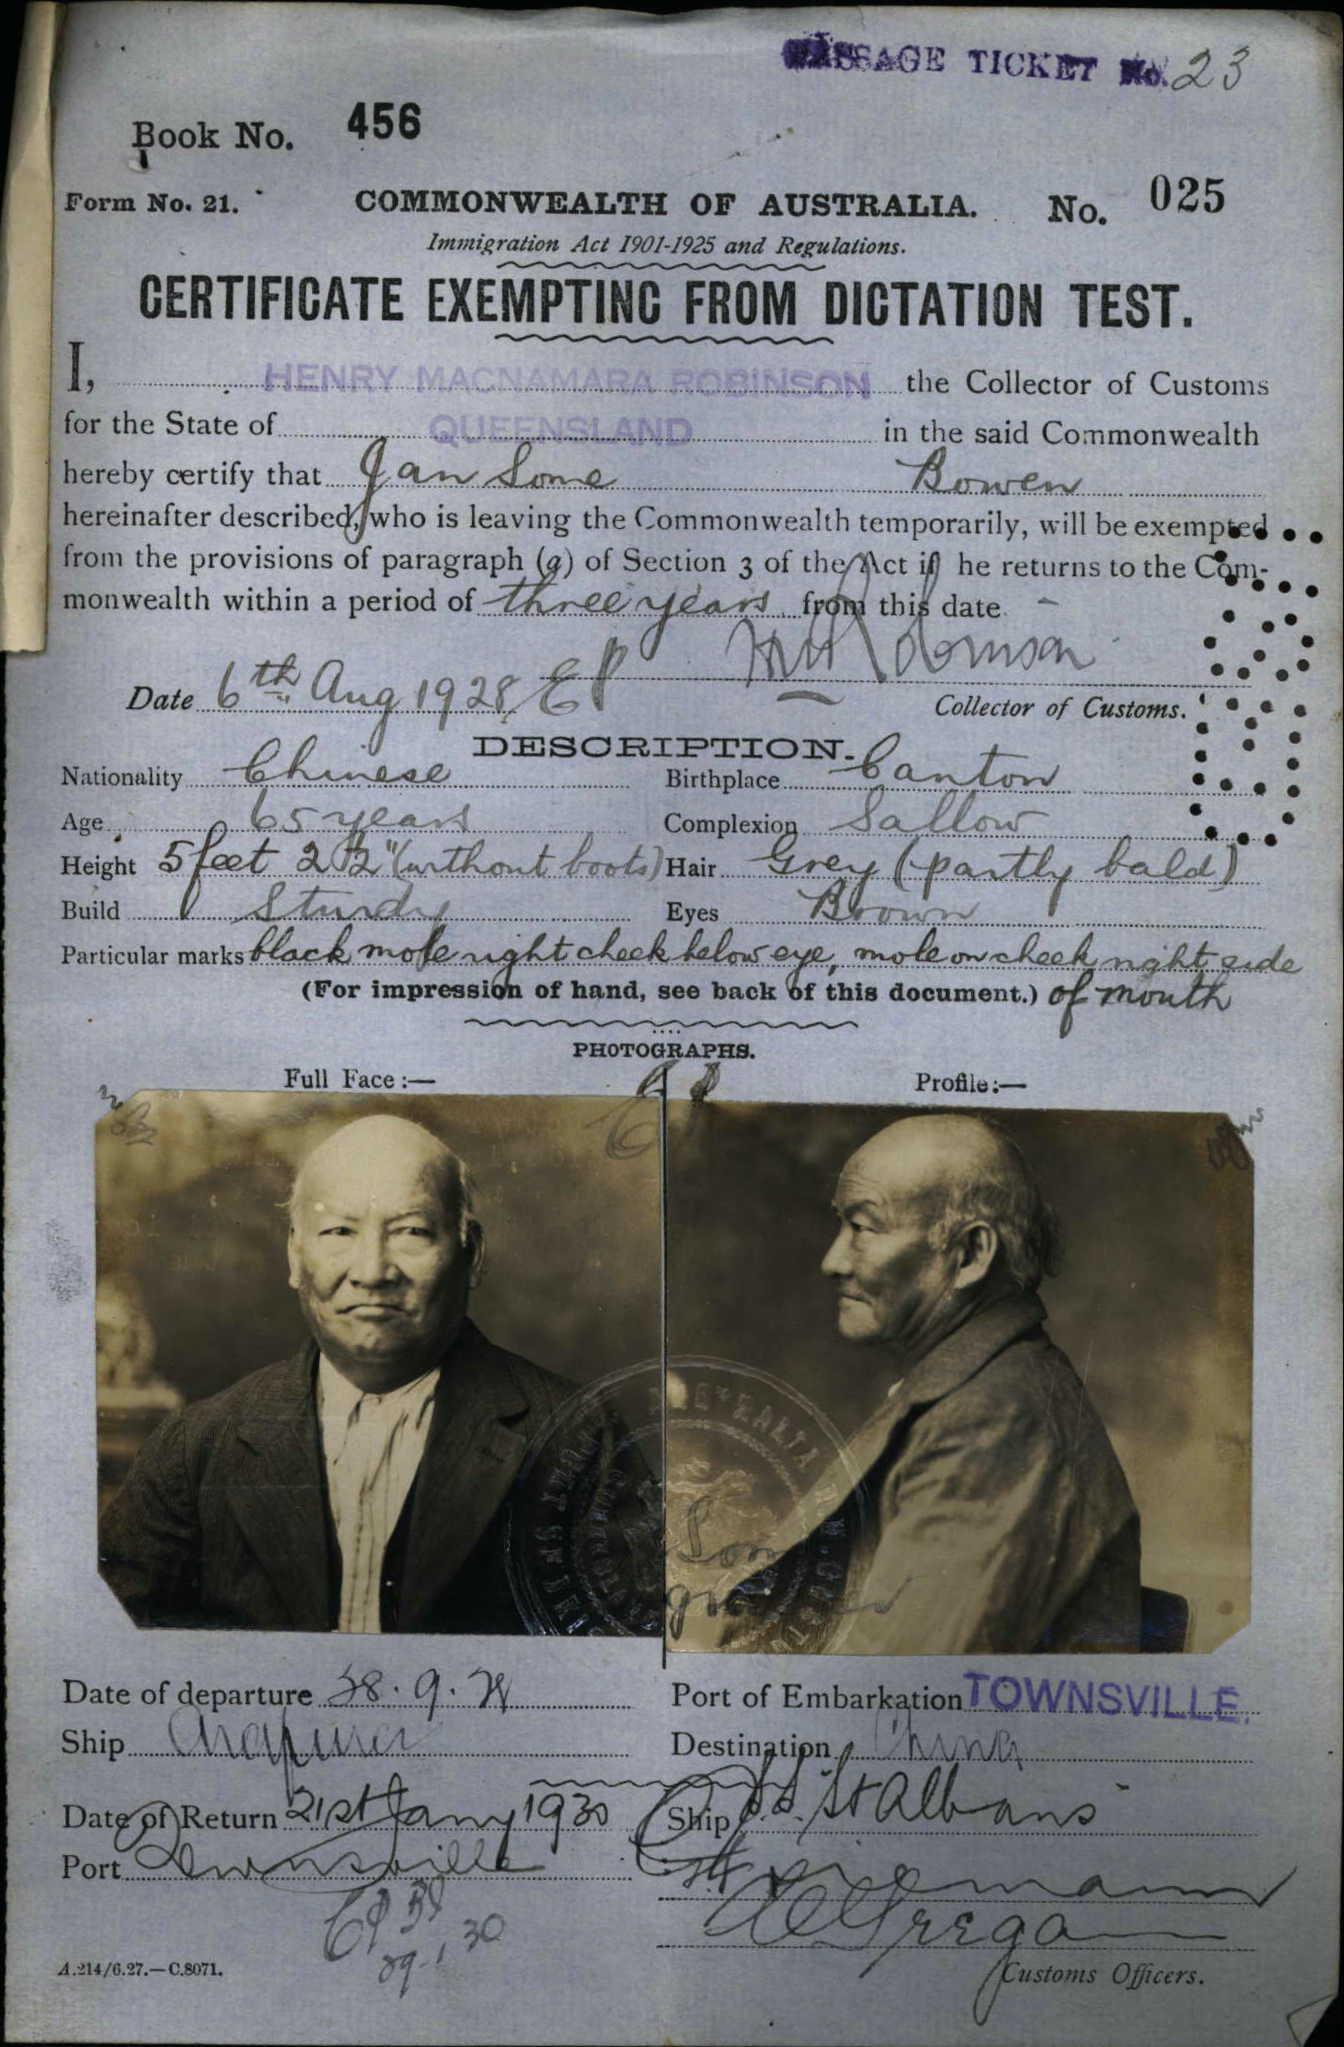 PASSAGE TICKET No. 23
Book No. 456
Form No. 21. COMMONWEALTH OF AUSTRALIA. No. 025
Immigration Act 1901-1925 and Regulations.
CERTIFICATE EXEMPTING FROM DICTATION TEST.
I, HENRY MACNAMARA ROBINSON the Collector of Customs
for the State of QUEENSLAND in the said Commonwealth
hereby certify that Jan Some Bowen
hereinafter described, who is leaving the Commonwealth temporarily, will be exempted
from the provisions of paragraph (a) of Section 3 of the Act if he returns to the Com-
monwealth within a period of three years from this date
HM Robinson
Date 6th Aug 1928 EP Collector of Customs.
DESCRIPTION.
Nationality Chinese Birthplace Canton
Age 65 years Complexion Sallow
Height 5 feet 2 1/2" (without boots) Hair Grey (partly bald)
Build Sturdy Eyes Brown
Particular marks black mole right cheek below eye, mole on cheek right side
(For impression of hand, see back of this document.) of mouth
PHOTOGRAPHS.
Full Face:— Profile:—
Date of departure 28.9.28 Port of Embarkation TOWNSVILLE.
Ship Arafura Destination China
Date of Return 21st Jany 1930 Ship S.S. "St Albans"
Port Townsville
29.1.30
A.214/6.27.—C.8071. Customs Officers.